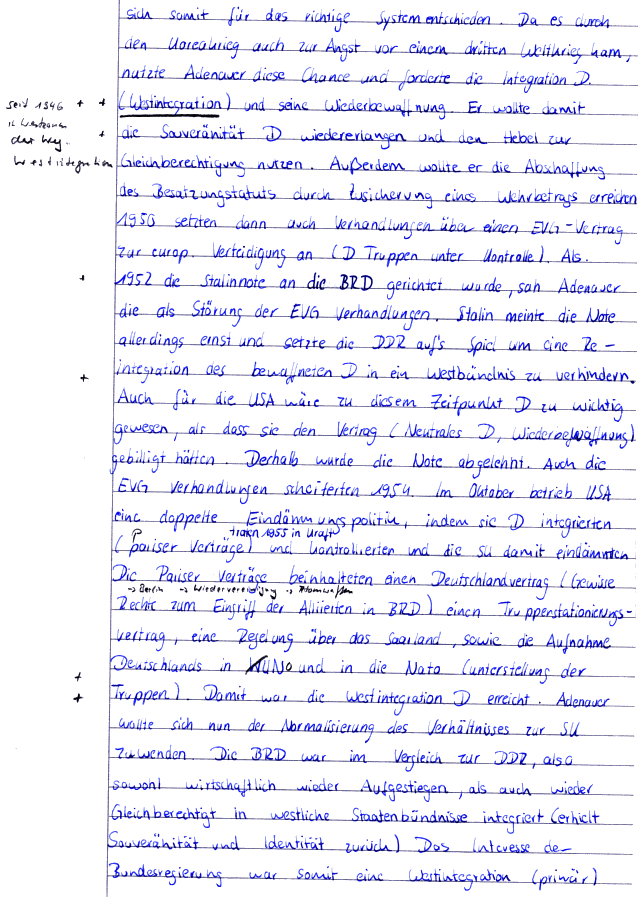 sich somit für das richtige System entschieden. Da es durch
den Koreakrieg auch zur Angst vor einem dritten Weltkrieg kam,
nutzte Adenauer diese Chance und forderte die Integration D.
seit 1946 + + (Westintegration) und seine Wiederbewaffnung. Er wollte damit
+ die Souveränität D wiedererlangen und den Hebel zur
der Weg.
Westintegration Gleichberechtigung nutzen. Außerdem wollte er die Abschaffung
des Besatzungstatuts durch Zusicherung eines Wehrbetrags erreichen
1950 setzten dann auch Verhandlungen über einen EVG-Vertrag
zur europ. Verteidigung an (D Truppen unter Kontrolle). Als.
+ 1952 die Stalinnote an die BRD gerichtet wurde, sah Adenauer
die als Störung der EVG Verhandlungen. Stalin meinte die Note
allerdings ernst und setzte die DDR auf's Spiel um eine Re-
+ integration des bewaffneten D in ein Westbündnis zu verhindern.
Auch für die USA wäre zu diesem Zeitpunkt D zu wichtig
gewesen, als dass sie den Vertrag (Neutrales D, Wiederbewaffnung)
gebilligt hätten. Deshalb wurde die Note abgelehnt. Auch die
EVG Verhandlungen scheiterten 1954. Im Oktober betrieb USA
eine doppelte Eindämmungspolitik, indem sie D integrierten
traten 1955 in Kraft
(Pariser Verträge) und kontrollierten und die SU damit eindämmten
Die Pariser Verträge beinhalteten einen Deutschlandvertrag (Gewisse
→ Berlin → Wiedervereinigung → Atomwaffen
Rechte zum Eingriff der Alliierten in BRD) einen Truppenstationierungs-
vertrag, eine Regelung über das Saarland, sowie die Aufnahme
Deutschlands in UNO und in die Nato (unterstellung der
+
+ Truppen). Damit war die Westintegration D erreicht. Adenauer
wollte sich nun der Normalisierung des Verhältnisses zur SU
zuwenden. Die BRD war im Vergleich zur DDR, also
sowohl wirtschaftlich wieder Aufgestiegen, als auch wieder
Gleichberechtigt in westliche Staatenbündnisse integriert (erhielt
Souveränität und Identität zurück) Das Interesse de-
Bundesregierung war somit eine Westintegration (primär)